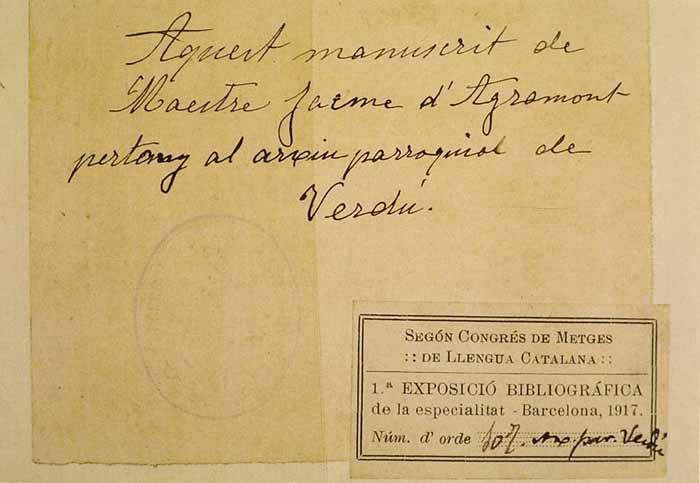 Aquest manuscrit de
Maestre Jacme d'Agramont
pertany al arxiu parroquial de
Verdú.
SEGÓN CONGRÉS DE METGES
:: DE LLENGUA CATALANA ::
1.ª EXPOSICIÓ BIBLIOGRÁFICA
de la especialitat - Barcelona, 1917.
Núm. d'orde Arx. par. Verdú